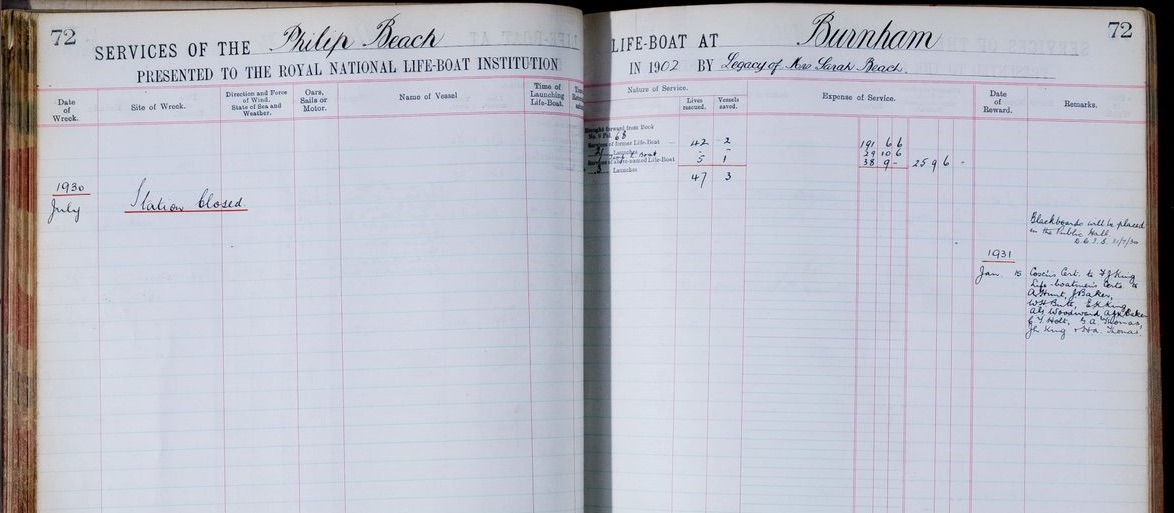 72
SERVICES OF THE Philip Beach
PRESENTED TO THE ROYAL NATIONAL LIFE-BOAT INSTITUTION
Date
of
Wreck.
Site of Wreck.
Direction and Force
of Wind.
State of Sea and
Weather.
Oars,
Sails or
Motor.
Name of Vessel
Time of
Launching
Life-Boat.
1930
July Station Closed.
72
LIFE-BOAT AT Burnham
IN 1902 BY Legacy of Mrs Sarah Beach.
Nature of Service.
Lives
rescued.
Vessels
saved.
Expense of Service.
Date
of
Reward.
Remarks.
Brought forward from Book
No. 9 Fol. 68
Services of former Life-Boat — 42 - 2 191 6 6
21 Launches - 29 10 6
Services of above-named Life-Boat 5 1 38 9 - 259 6 -
Launches
47 3
Blackboards will be placed
in the Public Hall.
21/7/30
1931
Jan. 15 Coxn's Cert. to F J King
Life-boatmen's Certs. to
A Hunt, J Baker,
W H Butt, E K King,
Alf Woodward, Baker
Holt, G A Thomas,
King & Thomas.